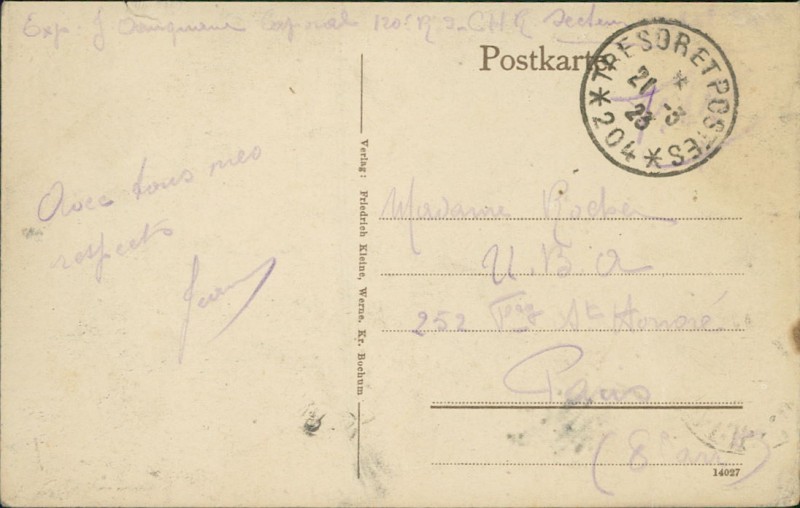 Exp: J caporal 120e R I CHR Secteur
Postkarte
TRESOR ET POSTES
* 204 *
21 -3
23
Avec tous mes
respects
Verlag: Friedrich Kleine, Werne, Kr. Bochum
Madame
U.B.A
252 Fbg St Honoré
Paris
(8e arr)
14027